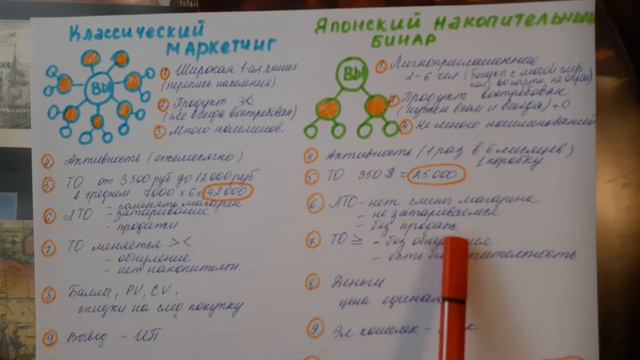 Классический
маркетинг
ВЫ
① Широкая 1-ая линия
② Продукт ><
(не всегда востребован)
③ Много наименов.
④ Активность (ежемесячно)
⑤ ТО от 3500 руб до 12000 руб
в среднем 7000 х 6 = 42 000
⑥ ЛТО - поменять магазин
- затаривание
- продажи
⑦ ТО меняется ><
- обнуление
- нет накопителн
⑧ Баллы, PV, CV.
скидки на след покупку
⑨ Вывод - ИП
Японский накопительный
бинар
ВЫ
①
2-6 чел
② Продукт востребован
(нужен всем и всегда) +0
③ Не много наименований
④ Активность (1 раз в 6 месяцев)
1 коробку
⑤ ТО 350 $ ≈ 25 000
⑥ ЛТО - нет смены магазина
- не затариваемся
- без продаж
⑦ ТО ≥ - без обнуления
- есть
⑧ Деньги
цена единая
⑨ Эл. кошелек -